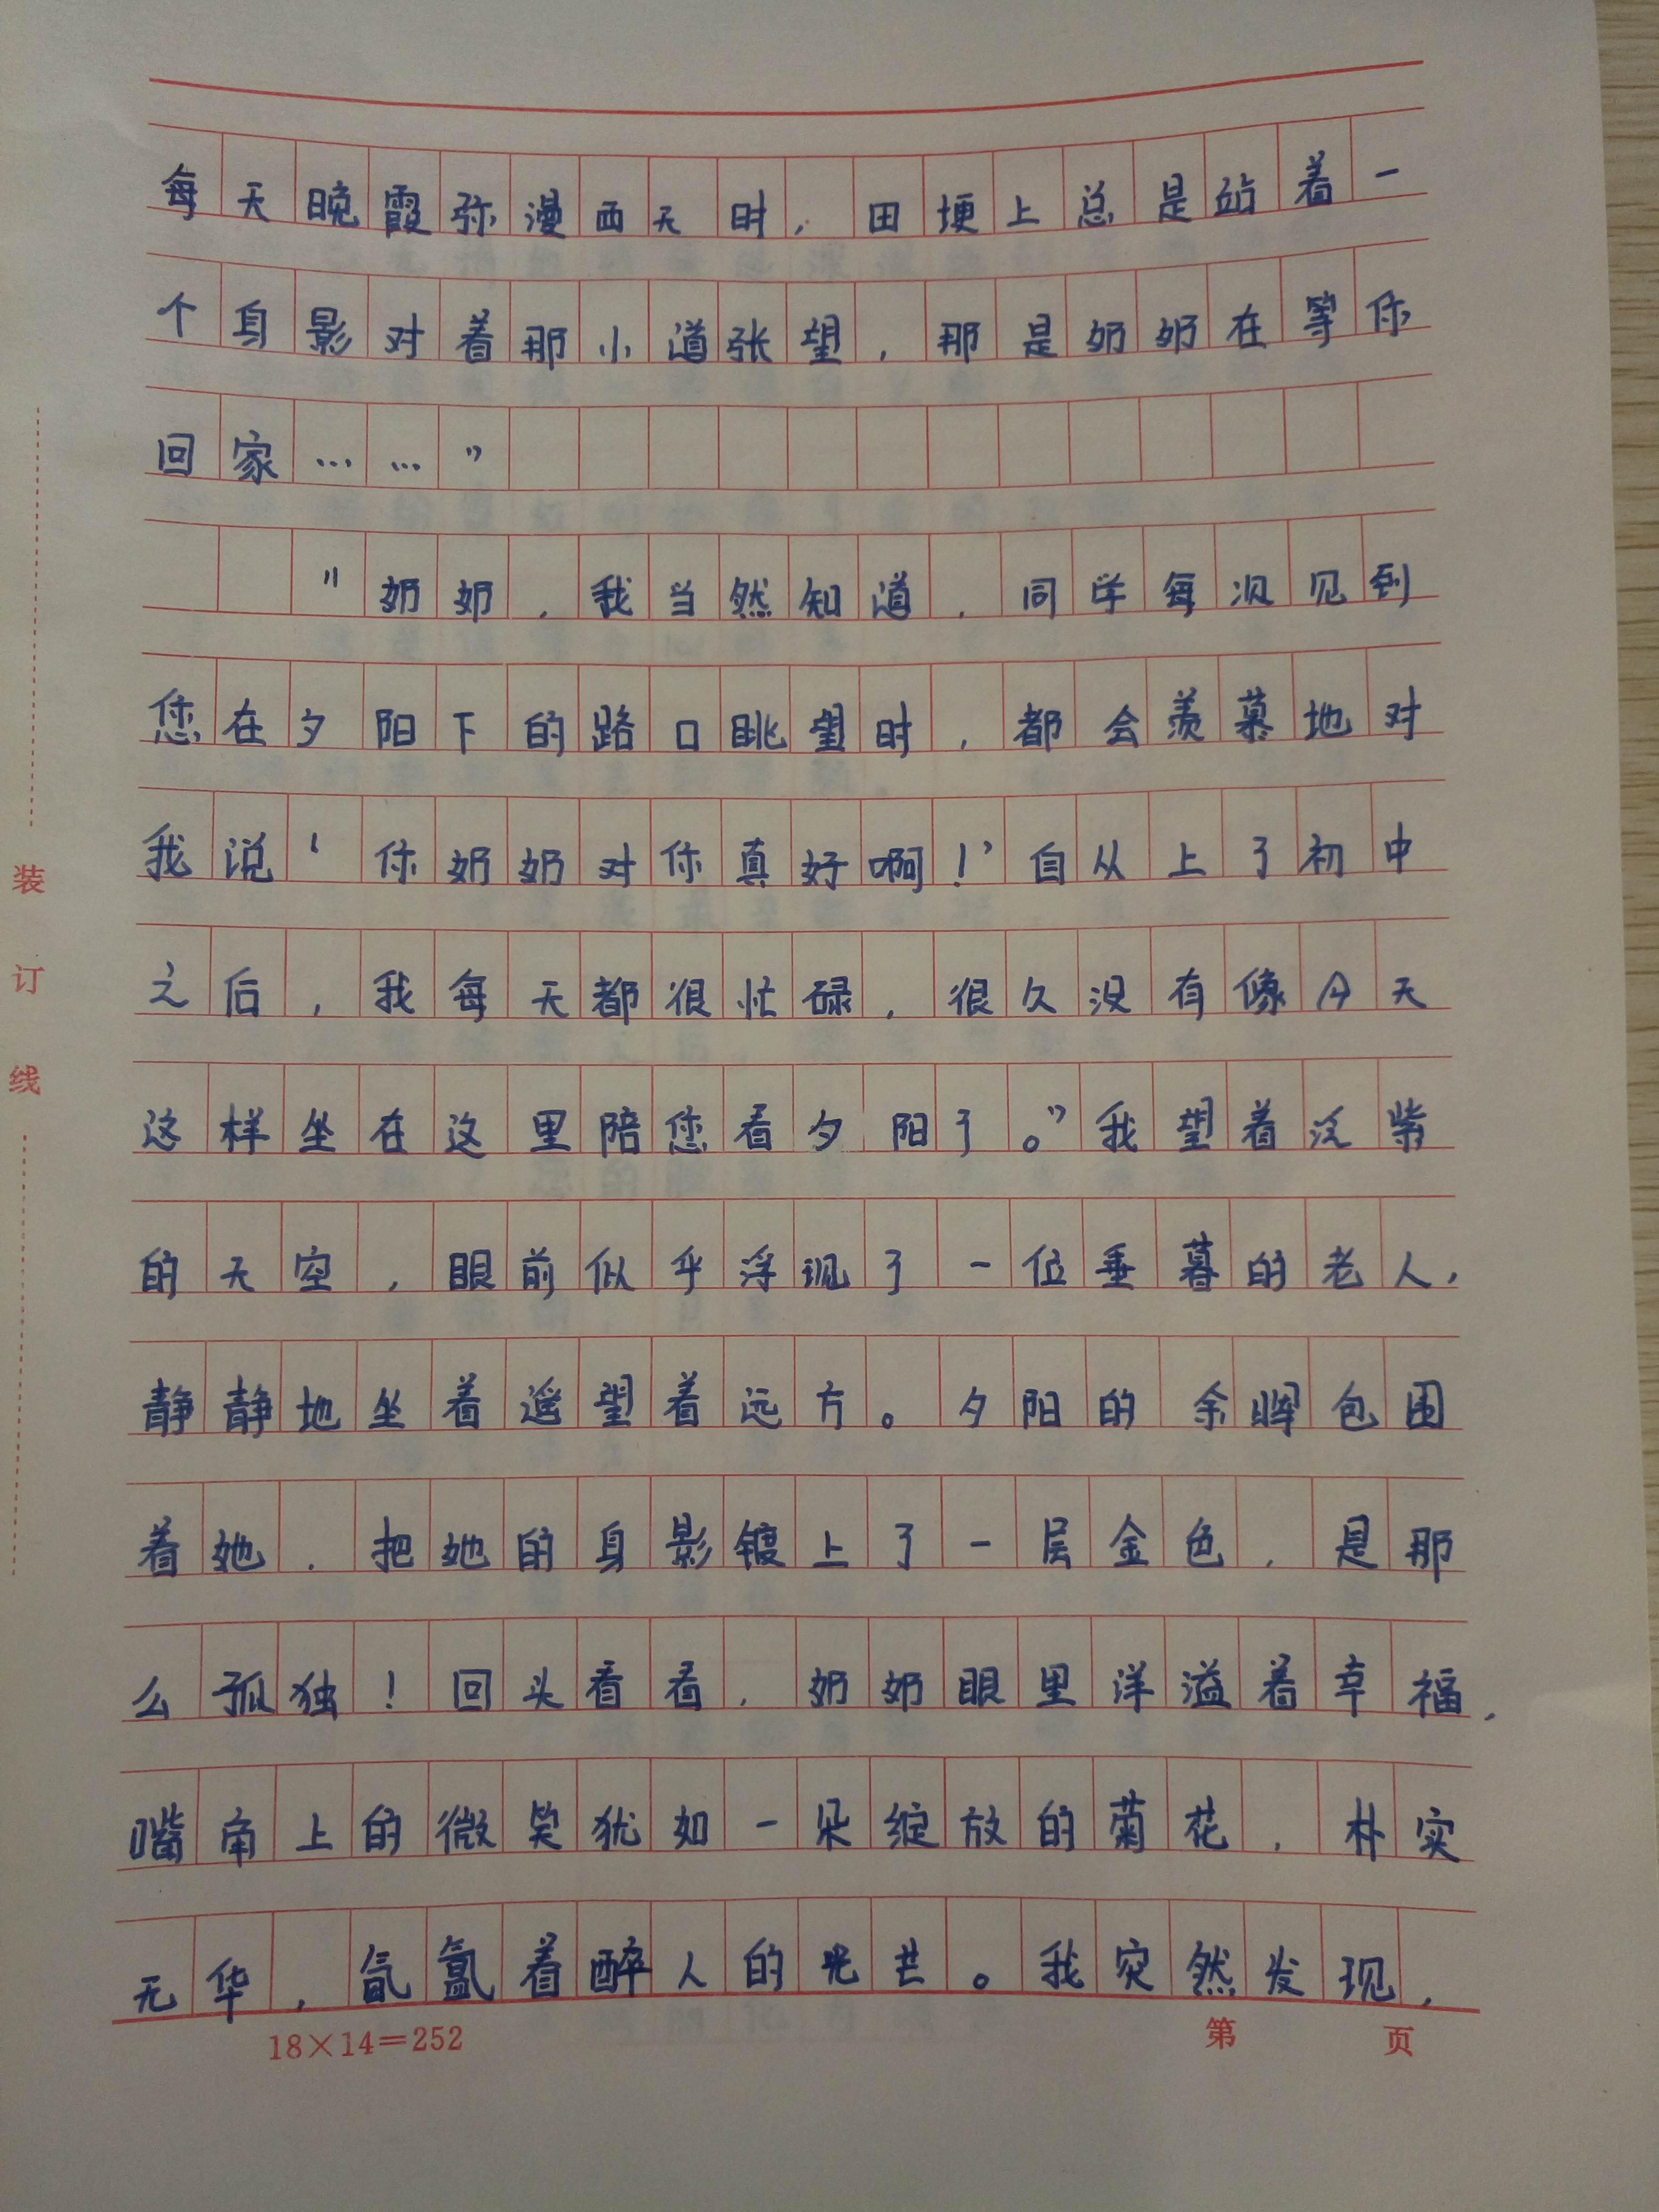 每天晚霞弥漫西天时，田埂上总是站着一
个身影对着那小道张望，那是奶奶在等你
回家……”
“奶奶，我当然知道，同学每次见到
您在夕阳下的路口眺望时，都会羡慕地对
我说‘你奶奶对你真好啊！’自从上了初中
之后，我每天都很忙碌，很久没有像今天
这样坐在这里陪您看夕阳了。”我望着淀紫
的天空，眼前似乎浮现了一位垂暮的老人，
静静地坐着遥望着远方。夕阳的余晖包围
着她，把她的身影镀上了一层金色，是那
么孤独！回头看看，奶奶眼里洋溢着幸福，
嘴角上的微笑犹如一朵绽放的菊花，朴实
无华，氤氲着醉人的光芒。我突然发现，
装
订
线
18×14=252
第 页